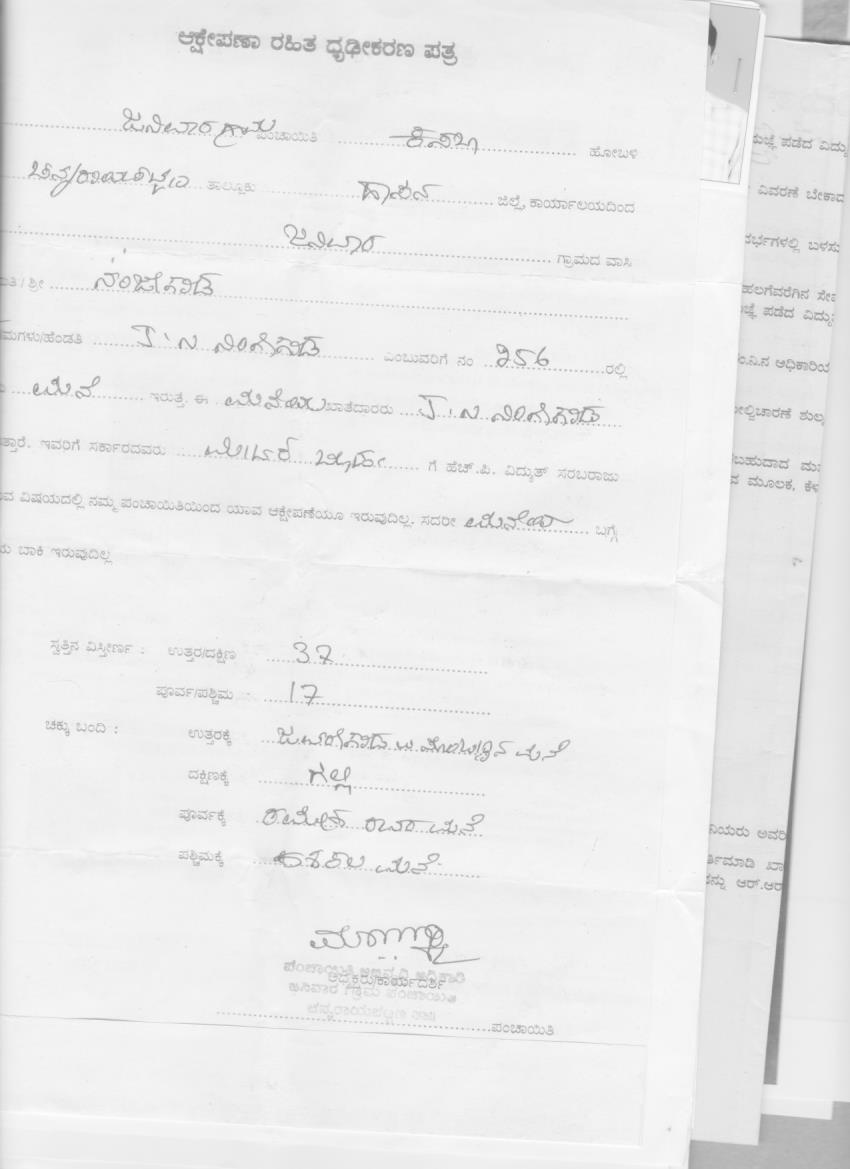 ಆಕ್ಷೇಪಣಾ ರಹಿತ ಧೃಢೀಕರಣ ಪತ್ರ
ಜನಿವಾರ ಗ್ರಾಮ ಪಂಚಾಯಿತಿ ಕಸಬಾ ಹೋಬಳಿ
ತಾಲ್ಲೂಕು ಹಾಸನ ಜಿಲ್ಲೆ, ಕಾರ್ಯಾಲಯದಿಂದ
ಜನಿವಾರ ಗ್ರಾಮದ ವಾಸಿ
ಶ್ರೀ ನಂಜೇಗೌಡ
ಮಗಳು/ಹೆಂಡತಿ ನಿಂಗೇಗೌಡ ಎಂಬುವರಿಗೆ ನಂ 256 ರಲ್ಲಿ
ಮನೆ ಇರುತ್ತೆ. ಈ ಮನೆಯ ಖಾತೆದಾರರು ನಿಂಗೇಗೌಡ
ತ್ತಾರೆ. ಇವರಿಗೆ ಸರ್ಕಾರದವರು ಗೆ ಹೆಚ್.ಪಿ. ವಿದ್ಯುತ್ ಸರಬರಾಜು
ವ ವಿಷಯದಲ್ಲಿ ನಮ್ಮ ಪಂಚಾಯಿತಿಯಿಂದ ಯಾವ ಆಕ್ಷೇಪಣೆಯೂ ಇರುವುದಿಲ್ಲ. ಸದರೀ ಮನೆಯ ಬಗ್ಗೆ
ಬಾಕಿ ಇರುವುದಿಲ್ಲ
ಸ್ವತ್ತಿನ ವಿಸ್ತೀರ್ಣ : ಉತ್ತರ/ದಕ್ಷಿಣ 37
ಪೂರ್ವ/ಪಶ್ಚಿಮ : 17
ಚಕ್ಕು ಬಂದಿ : ಉತ್ತರಕ್ಕೆ ಮನೆ
ದಕ್ಷಿಣಕ್ಕೆ ಗಲ್ಲಿ
ಪೂರ್ವಕ್ಕೆ ಮನೆ
ಪಶ್ಚಿಮಕ್ಕೆ ಮನೆ
ಪಂಚಾಯಿತಿ ಅಭಿವೃದ್ಧಿ ಅಧಿಕಾರಿ
ಅಧ್ಯಕ್ಷರು/ಕಾರ್ಯದರ್ಶಿ
ಜನಿವಾರ ಗ್ರಾಮ ಪಂಚಾಯಿತಿ
ಪಂಚಾಯಿತಿ
ಪಡೆದ ವಿದ್ಯು
ವಿವರಣೆ ಬೇಕಾದ
ರ್ಭಗಳಲ್ಲಿ ಬಳಸು
ಹಲಗೆವರೆಗಿನ ಸೇವ
ಪಡೆದ ವಿದ್ಯು
ಂ.ನಿ.ನ ಅಧಿಕಾರಿಯ
ಲ್ವಿಚಾರಣೆ ಶುಲ್ಕ
ಬಹುದಾದ ಮ
ವ ಮೂಲಕ, ಕೆಳ
ನಿಯರು ಅವರಿ
ರ್ತಿಮಾಡಿ ಖಾ
ನ್ನು ಆರ್.ಆರ್